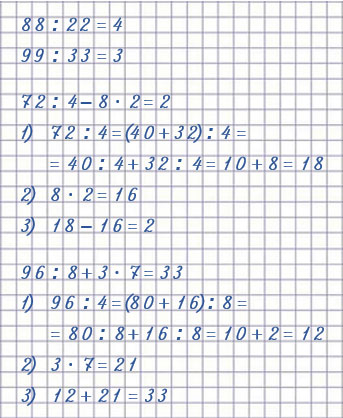 88 : 22 = 4
99 : 33 = 3
72 : 4 – 8 · 2 = 2
1) 72 : 4 = (40 + 32) : 4 =
= 40 : 4 + 32 : 4 = 10 + 8 = 18
2) 8 · 2 = 16
3) 18 – 16 = 2
96 : 8 + 3 · 7 = 33
1) 96 : 4 = (80 + 16) : 8 =
= 80 : 8 + 16 : 8 = 10 + 2 = 12
2) 3 · 7 = 21
3) 12 + 21 = 33